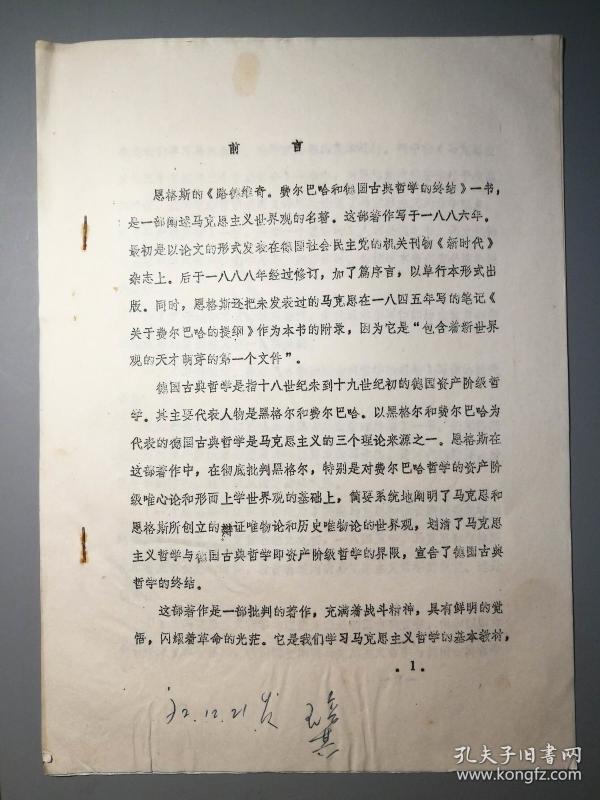 前 言
恩格斯的《路德维奇。费尔巴哈和德国古典哲学的终结》一书，
是一部阐述马克思主义世界观的名著。这部著作写于一八八六年。
最初是以论文的形式发表在德国社会民主党的机关刊物《新时代》
杂志上。后于一八八八年经过修订，加了篇序言，以单行本形式出
版。同时，恩格斯还把未发表过的马克思在一八四五年写的笔记《
关于费尔巴哈的提纲》作为本书的附录，因为它是“包含着新世界
观的天才萌芽的第一个文件”。
德国古典哲学是指十八世纪末到十九世纪初的德国资产阶级哲
学。其主要代表人物是黑格尔和费尔巴哈。以黑格尔和费尔巴哈为
代表的德国古典哲学是马克思主义的三个理论来源之一。恩格斯在
这部著作中，在彻底批判黑格尔，特别是对费尔巴哈哲学的资产阶
级唯心论和形而上学世界观的基础上，简要系统地阐明了马克思和
恩格斯所创立的辩证唯物论和历史唯物论的世界观，划清了马克思
主义哲学与德国古典哲学即资产阶级哲学的界限，宣告了德国古典
哲学的终结。
这部著作是一部批判的著作，充满着战斗精神，具有鲜明的党
悟，闪耀着革命的光茫。它是我们学习马克思主义哲学的基本教材，
.1.
12.21
孔夫子旧书网
www.kongfz.com